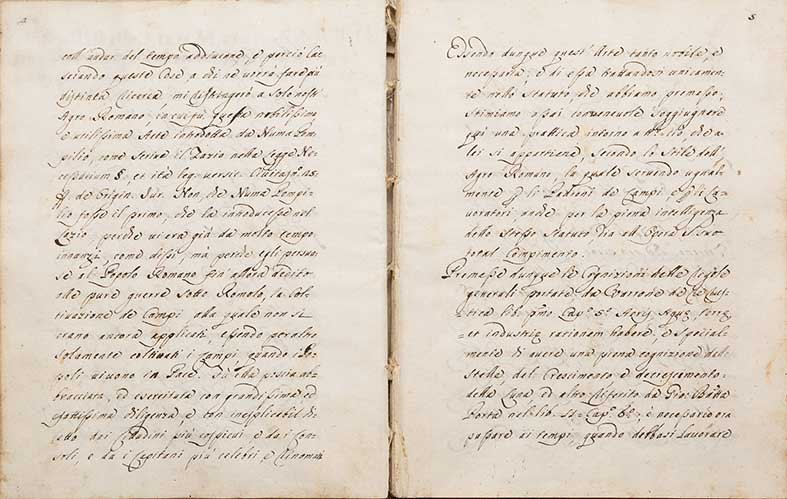 coll' andar del tempo adducare, e perciò la-
sciando queste cose a chi ne vorrà fare più
distinta ricerca, mi ristringerò a solo nostro
Agro Romano, in cui fu questa nobilissima
e utilissima Arte introdotta da Numa Pom-
pilio, come scrive il Zasio nella Legge Ne-
cessarium §. et ita leg. versic.
ff. de Origin. Jur. Non, che Numa Pompi-
lio fosse il primo, che la introducesse nel
Lazio, perchè vi era già da molto tempo
innanzi, come dissi, ma perchè egli persua-
se al Popolo Romano fin' allora dedito
alle pure guerre sotto Romolo, la Col-
tivazione de Campi alla quale non si
erano ancora applicati, essendo per altro
solamente coltivati i campi, quando i Po-
poli vivono in Pace. Fù ella poscia ab-
bracciata, ed esercitata con grandissima ed
esattissima diligenza, e con inesplicabil di-
letto dai Cittadini più cospicui, e da i Con-
soli, e da i Capitani più celebri, e rinomati
5
Essendo dunque quest' Arte tanto nobile, e
necessaria, e di essa trattandosi unicamen-
te nello Statuto, che abbiamo premesso,
Stimiamo assai convenevole soggiugnere
qui una prattica intorno a ciò, che a
lei si appartiene, secondo lo Stile dell'
Agro Romano, la quale servendo ugual-
mente p li Padroni de Campi, e p gli La-
voratori, anche per la piena intelligenza
dello Stesso Statuto, sia all' Opera
total Compimento.
Premesse dunque le Cognizioni delle Regole
generali portate da Varrone de re Rus-
tica lib. pmo Cap. 5. Aeris, Aquę, terrę
et industrię rationem habere, e special-
mente di avere una piena cognizione delle
Stelle, del Crescimento, e decrescimento
della Luna, ed altro riferito da Gio: Batta
Porta nel lib. Cap. 6., è necessario ora
passare ai tempi, quando debbasi lavorare